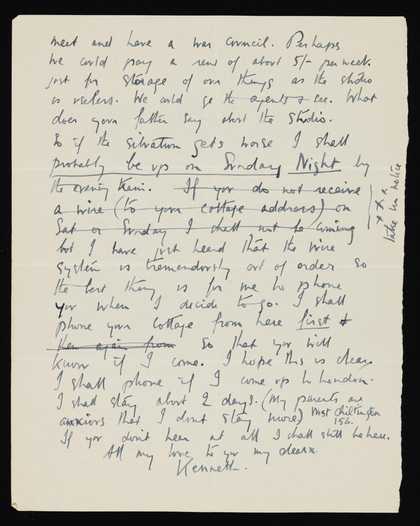 meet and have a war council. Perhaps
we could pay a rent of about 5/- per week
just for storage of our things as the studio
is useless. We could go the agents & see. What
does your father say about the studio.
So if the situation gets worse I shall
probably be up on Sunday Night by
the evening train. If you do not receive
a wire (to your cottage address) on
Sat or Sunday I shall not be coming
but I have just heard that the wire
system is tremendously out of order so
the best thing is for me to phone
you when I decide to go. I shall
phone your cottage from here first &
then again from so that you will
know if I come. I hope this is clear.
I shall phone if I come up to London.
I shall stay about 2 days. (My parents are
anxious that I dont stay more) West Chiltington
156.
If you don't hear at all I shall still be here.
All my love to you my dearx.
Kenneth.
x x x
take in notice